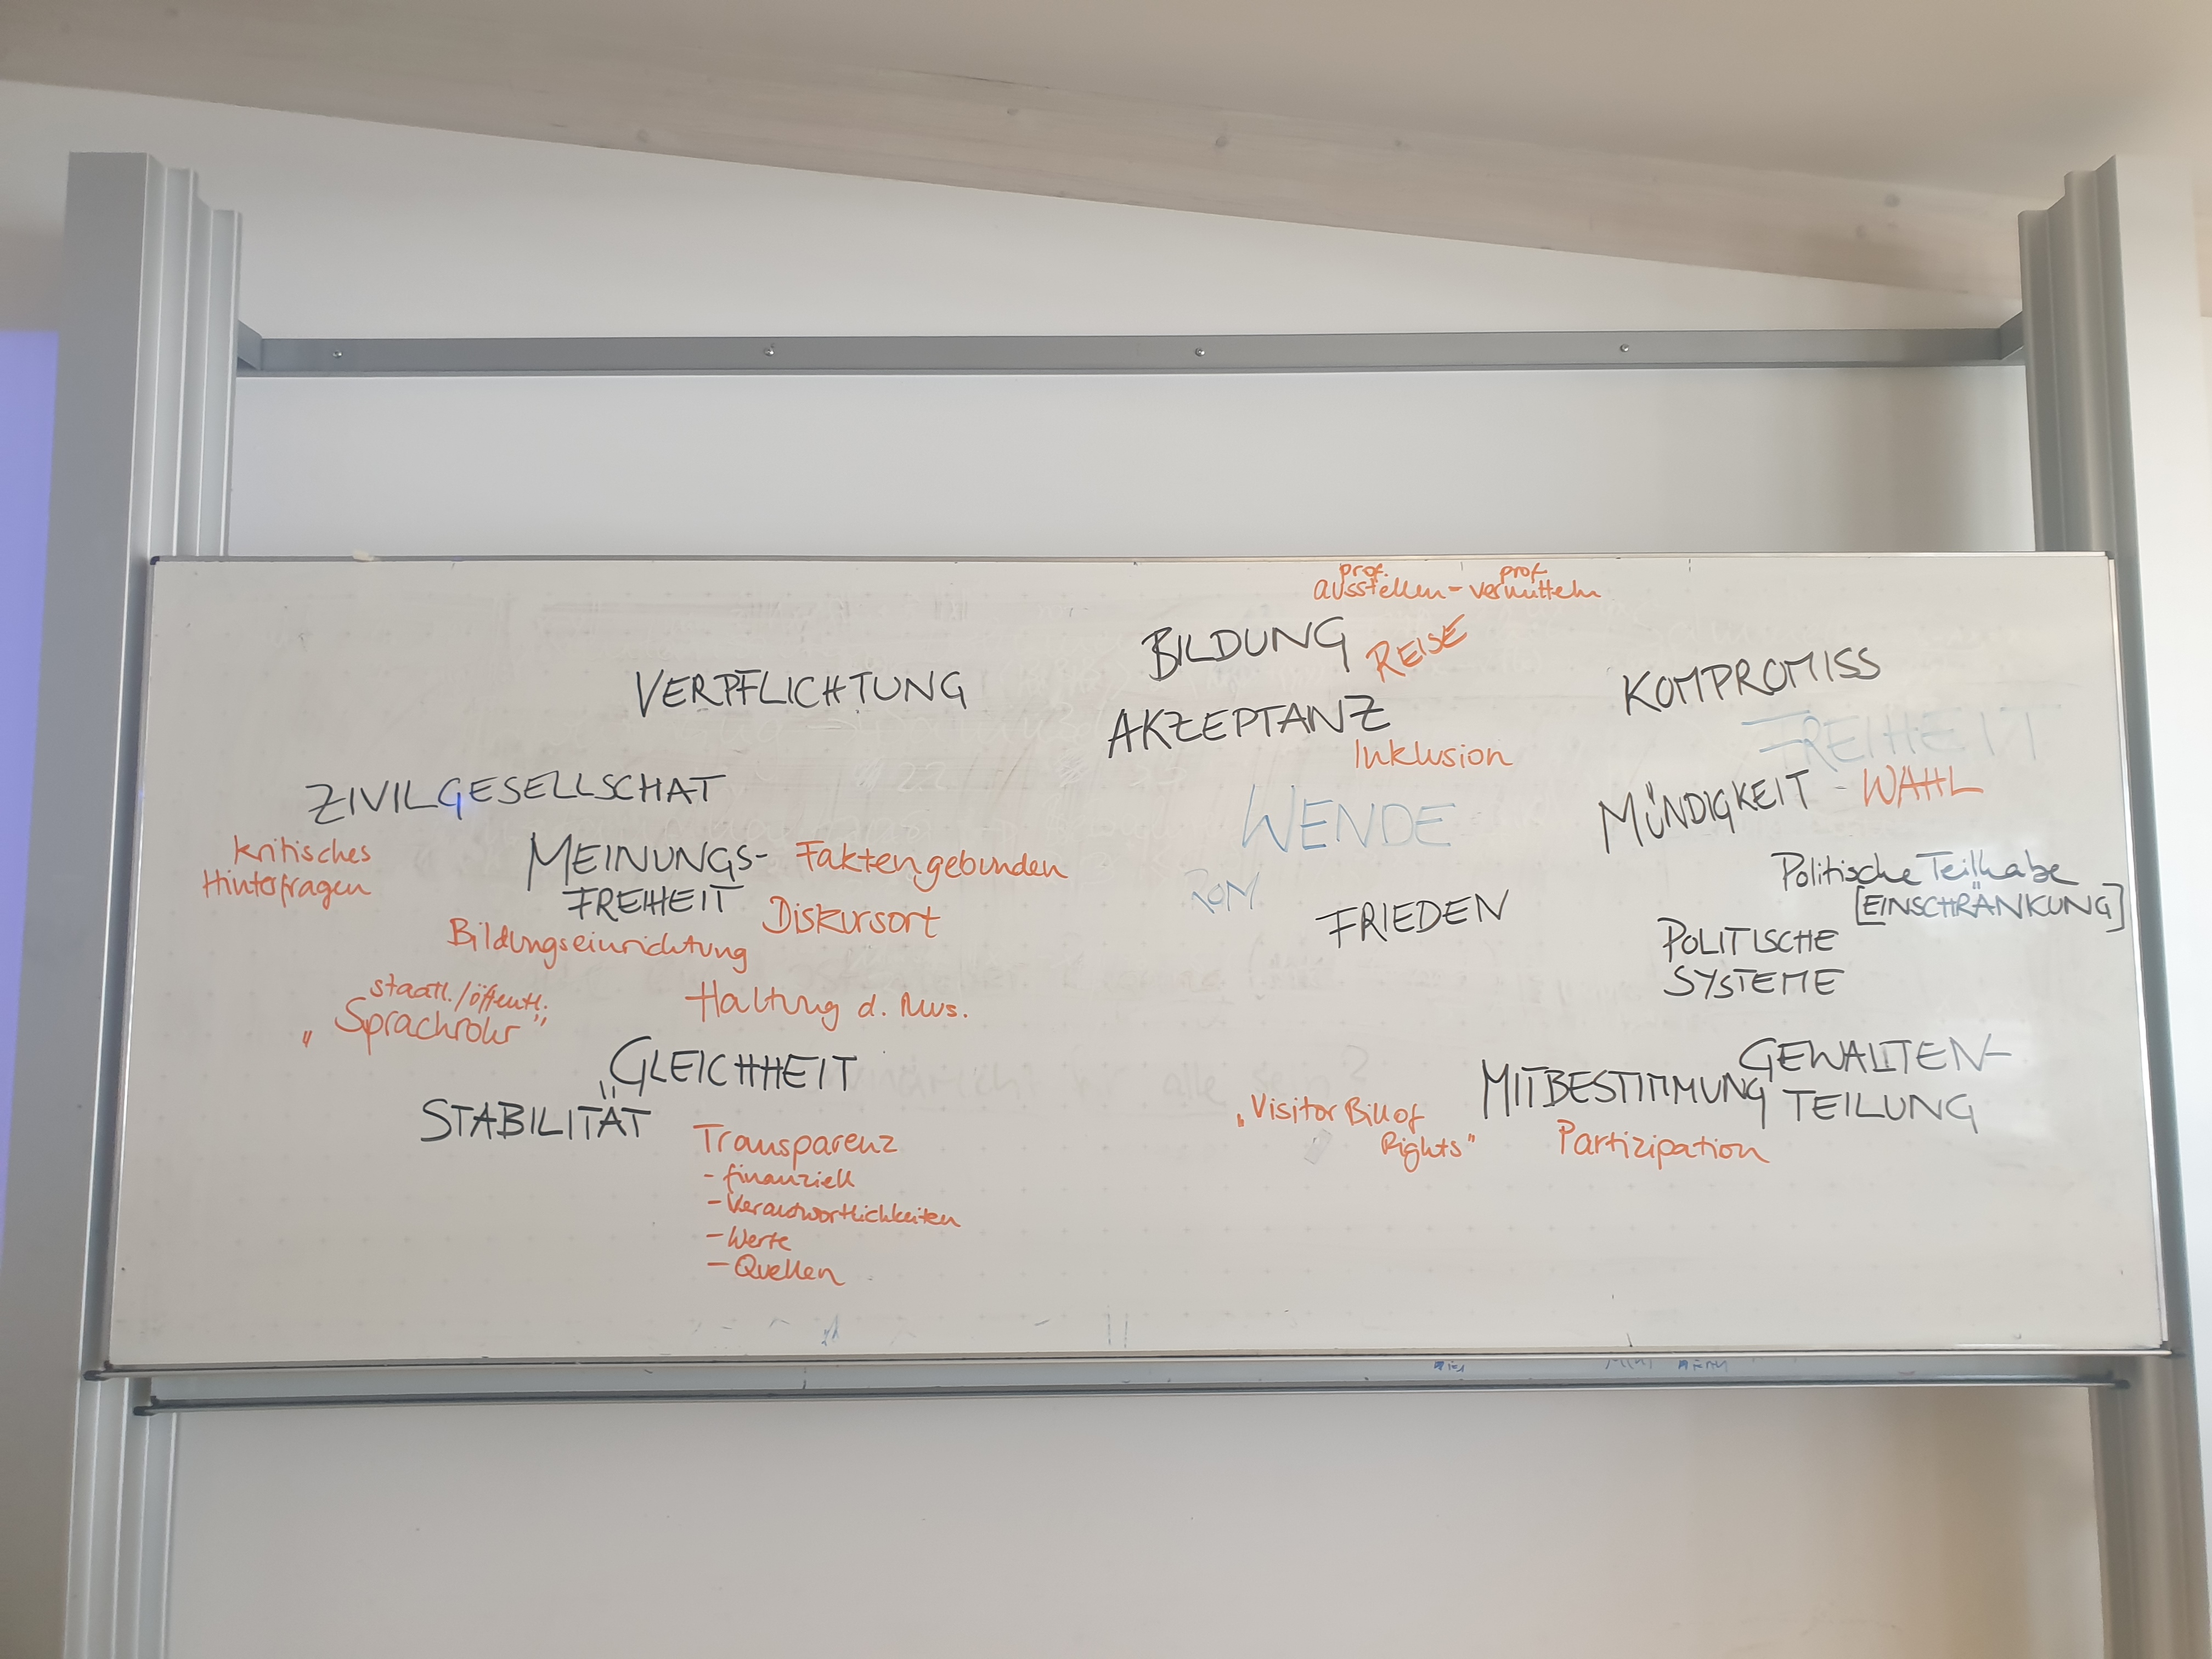 prof. prof.
ausstellen - vermitteln
BILDUNG REISE
VERPFLICHTUNG
AKZEPTANZ
Inklusion
KOMPROMISS
FREIHEIT
MÜNDIGKEIT - WAHL
ZIVILGESELLSCHAT
kritisches
Hinterfragen
MEINUNGS-
FREIHEIT
Faktengebunden
Diskursort
Bildungseinrichtung
WENDE
ROM
FRIEDEN
Politische Teilhabe
[EINSCHRÄNKUNG]
POLITISCHE
SYSTEME
staatl./öffentl.
„Sprachrohr"
Haltung d. Mus.
„GLEICHHEIT
STABILITÄT
Transparenz
- finanziell
- Verantwortlichkeiten
- Werte
- Quellen
GEWALTEN-
TEILUNG
MITBESTIMMUNG
„Visitor Bill of
Rights"
Partizipation